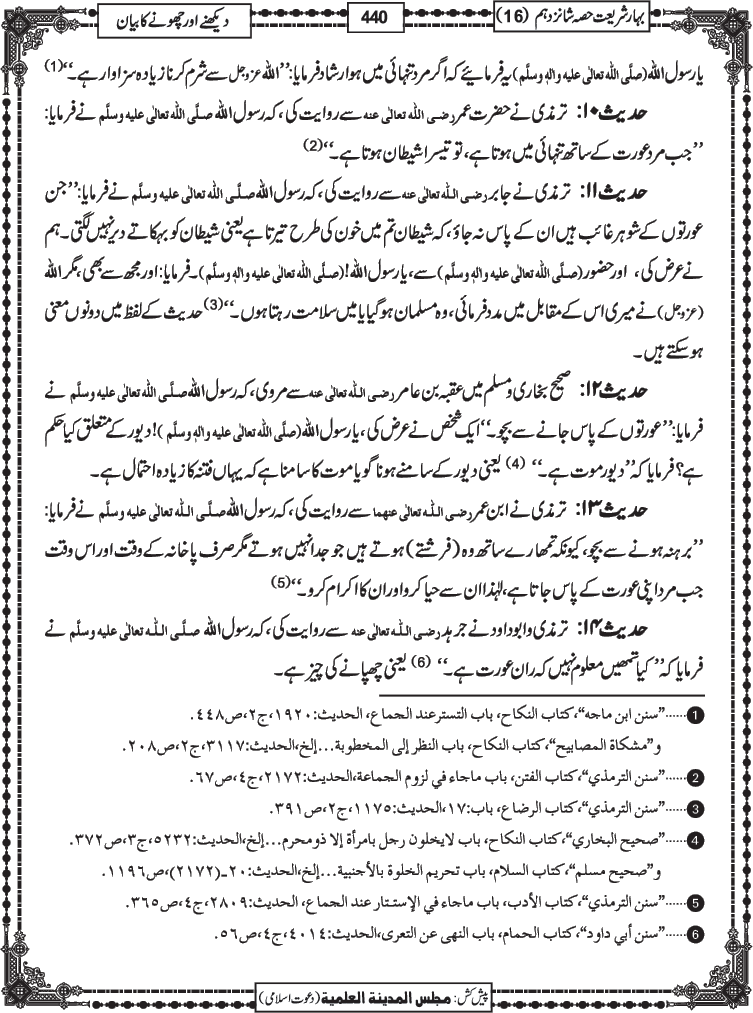 بہارِ شریعت حصہ شانزدہم (16)
440
دیکھنے اور چھونے کا بیان
یارسول اللہ (صلَّی اللہ تعالٰی علیہ واٰلہٖ وسلَّم) یہ فرمائیے کہ اگر مرد تنہائی میں ہو ارشاد فرمایا: ’’اللہ عزوجل سے شرم کرنا زیادہ سزاوار ہے۔‘‘(1)
حدیث ۱۰: ترمذی نے حضرت عمر رضی اللہ تعالٰی عنہ سے روایت کی، کہ رسول اللہ صلَّی اللہ تعالٰی علیہ واٰلہٖ وسلَّم نے فرمایا:
’’جب مرد عورت کے ساتھ تنہائی میں ہوتا ہے، تو تیسرا شیطان ہوتا ہے۔‘‘(2)
حدیث ۱۱: ترمذی نے جابر رضی اللہ تعالٰی عنہ سے روایت کی، کہ رسول اللہ صلَّی اللہ تعالٰی علیہ واٰلہٖ وسلَّم نے فرمایا: ’’جن
عورتوں کے شوہر غائب ہیں ان کے پاس نہ جاؤ، کہ شیطان تم میں خون کی طرح تیرتا ہے یعنی شیطان کو بہکاتے دیر نہیں لگتی۔ ہم
نے عرض کی، اور حضور (صلَّی اللہ تعالٰی علیہ واٰلہٖ وسلَّم) سے، یارسول اللہ! (صلَّی اللہ تعالٰی علیہ واٰلہٖ وسلَّم)۔ فرمایا: اور مجھ سے بھی، مگر اللہ
(عزوجل) نے میری اس کے مقابل میں مدد فرمائی، وہ مسلمان ہو گیا یا میں سلامت رہتا ہوں۔‘‘(3) حدیث کے لفظ میں دونوں معنی
ہو سکتے ہیں۔
حدیث ۱۲: صحیح بخاری و مسلم میں عقبہ بن عامر رضی اللہ تعالٰی عنہ سے مروی، کہ رسول اللہ صلَّی اللہ تعالٰی علیہ واٰلہٖ وسلَّم نے
فرمایا: ’’عورتوں کے پاس جانے سے بچو۔‘‘ ایک شخص نے عرض کی، یارسول اللہ (صلَّی اللہ تعالٰی علیہ واٰلہٖ وسلَّم)! دیور کے متعلق کیا حکم
ہے؟ فرمایا کہ ’’دیور موت ہے۔‘‘ (4) یعنی دیور کے سامنے ہونا گویا موت کا سامنا ہے کہ یہاں فتنہ کا زیادہ احتمال ہے۔
حدیث ۱۳: ترمذی نے ابن عمر رضی اللہ تعالٰی عنہما سے روایت کی، کہ رسول اللہ صلَّی اللہ تعالٰی علیہ واٰلہٖ وسلَّم نے فرمایا:
’’برہنہ ہونے سے بچو، کیونکہ تمھارے ساتھ وہ (فرشتے) ہوتے ہیں جو جدا نہیں ہوتے مگر صرف پاخانہ کے وقت اور اس وقت
جب مرد اپنی عورت کے پاس جاتا ہے، لہٰذا ان سے حیا کرو اور ان کا اکرام کرو۔‘‘(5)
حدیث ۱۴: ترمذی و ابو داود نے جرہد رضی اللہ تعالٰی عنہ سے روایت کی، کہ رسول اللہ صلَّی اللہ تعالٰی علیہ واٰلہٖ وسلَّم نے
فرمایا کہ ’’کیا تمھیں معلوم نہیں کہ ران عورت ہے۔‘‘ (6) یعنی چھپانے کی چیز ہے۔
1 ......”سنن ابن ماجه“،كتاب النكاح، باب التستر عند الجماع، الحديث:۱۹۲۰،ج۲،ص۴۴۸.
و”مشكاة المصابيح“،كتاب النكاح، باب النظر إلى المخطوبة...إلخ،الحديث:۳۱۱۷،ج۲،ص۲۰۸.
2 ......”سنن الترمذي“،كتاب الفتن، باب ماجاء في لزوم الجماعة،الحديث:۲۱۷۲،ج٤،ص۶۷.
3 ......”سنن الترمذي“،كتاب الرضاع، باب:۱۷،الحديث:۱۱۷۵،ج۲،ص۳۹۱.
4 ......”صحيح البخاري“،كتاب النكاح، باب لايخلون رجل بامرأة إلا ذومحرم...إلخ،الحديث:۵۲۳۲،ج۳،ص۳۷۲.
و”صحيح مسلم“،كتاب السلام، باب تحريم الخلوة بالأجنبية...إلخ،الحديث:۲۰ـ(۲۱۷۲)،ص۱۱۹۶.
5 ......”سنن الترمذي“،كتاب الأدب، باب ماجاء في الإستتار عند الجماع، الحديث:۲۸۰۹،ج٤،ص۳۶۵.
6 ......”سنن أبي داود“،كتاب الحمام، باب النهى عن التعرى،الحديث:٤۰۱٤،ج٤،ص۵۶.
پیش کش: مجلس المدینة العلمیة (دعوت اسلامی)